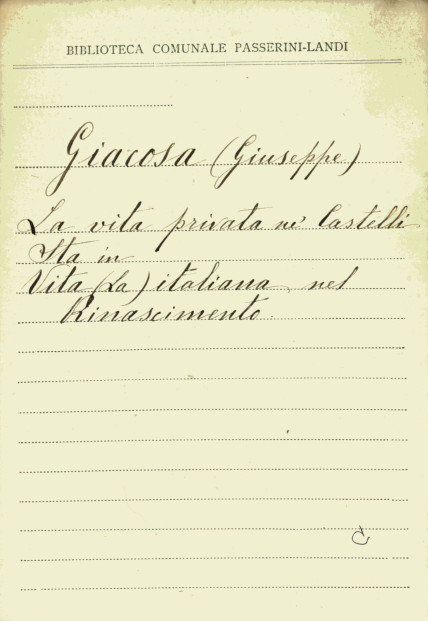 BIBLIOTECA COMUNALE PASSERINI-LANDI
Giacosa (Giuseppe)
La vita privata ne' Castelli
Sta in
Vita (La) italiana nel
Rinascimento.
C